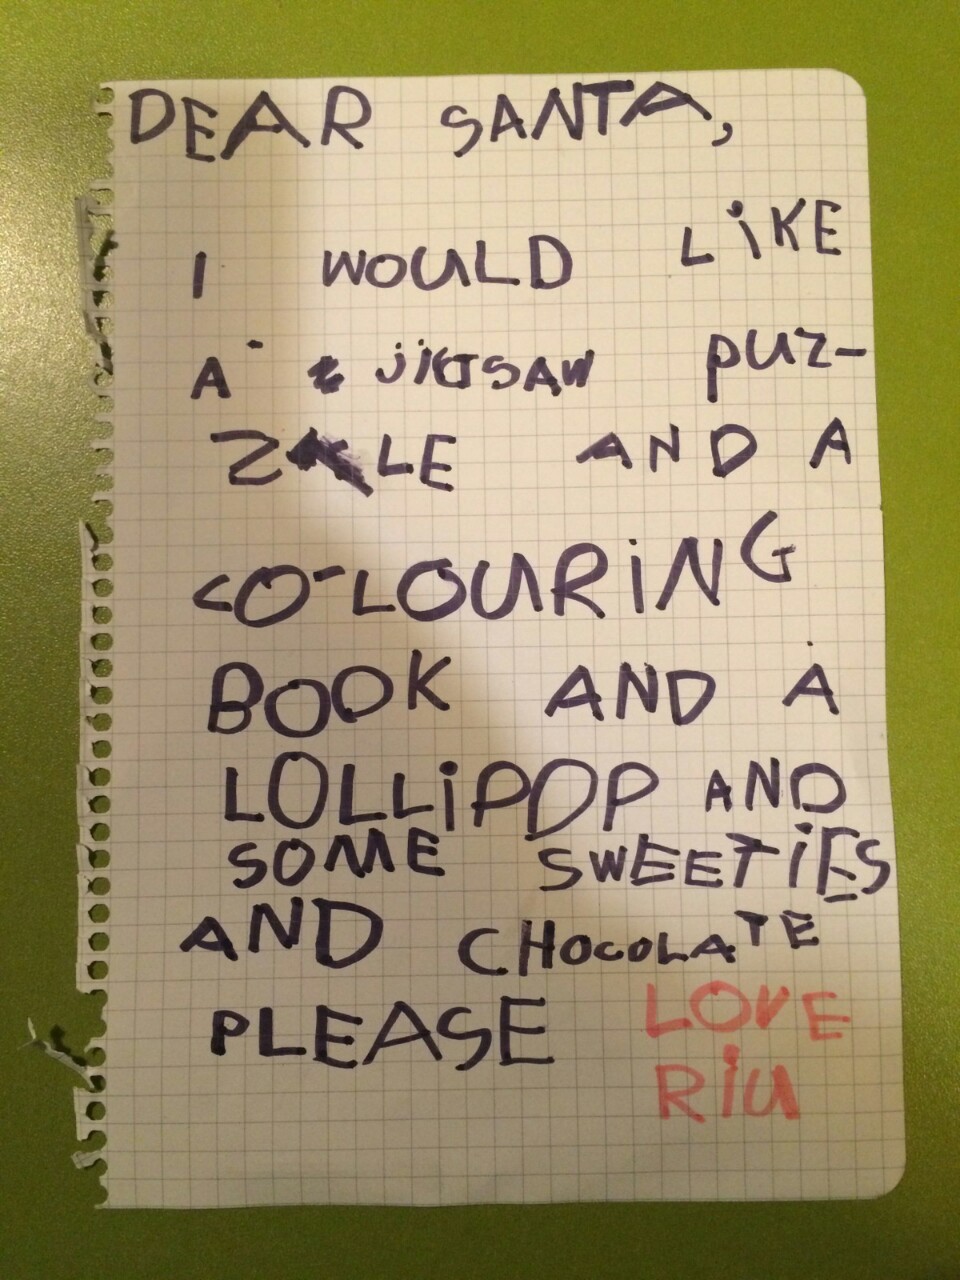 DEAR SANTA,
I WOULD LIKE
A JIGTSAW PUZ-
ZLE AND A
CO-LOURING
BOOK AND A
LOLLIPOP AND
SOME SWEETIES
AND CHOCOLATE
PLEASE LOVE
RIU